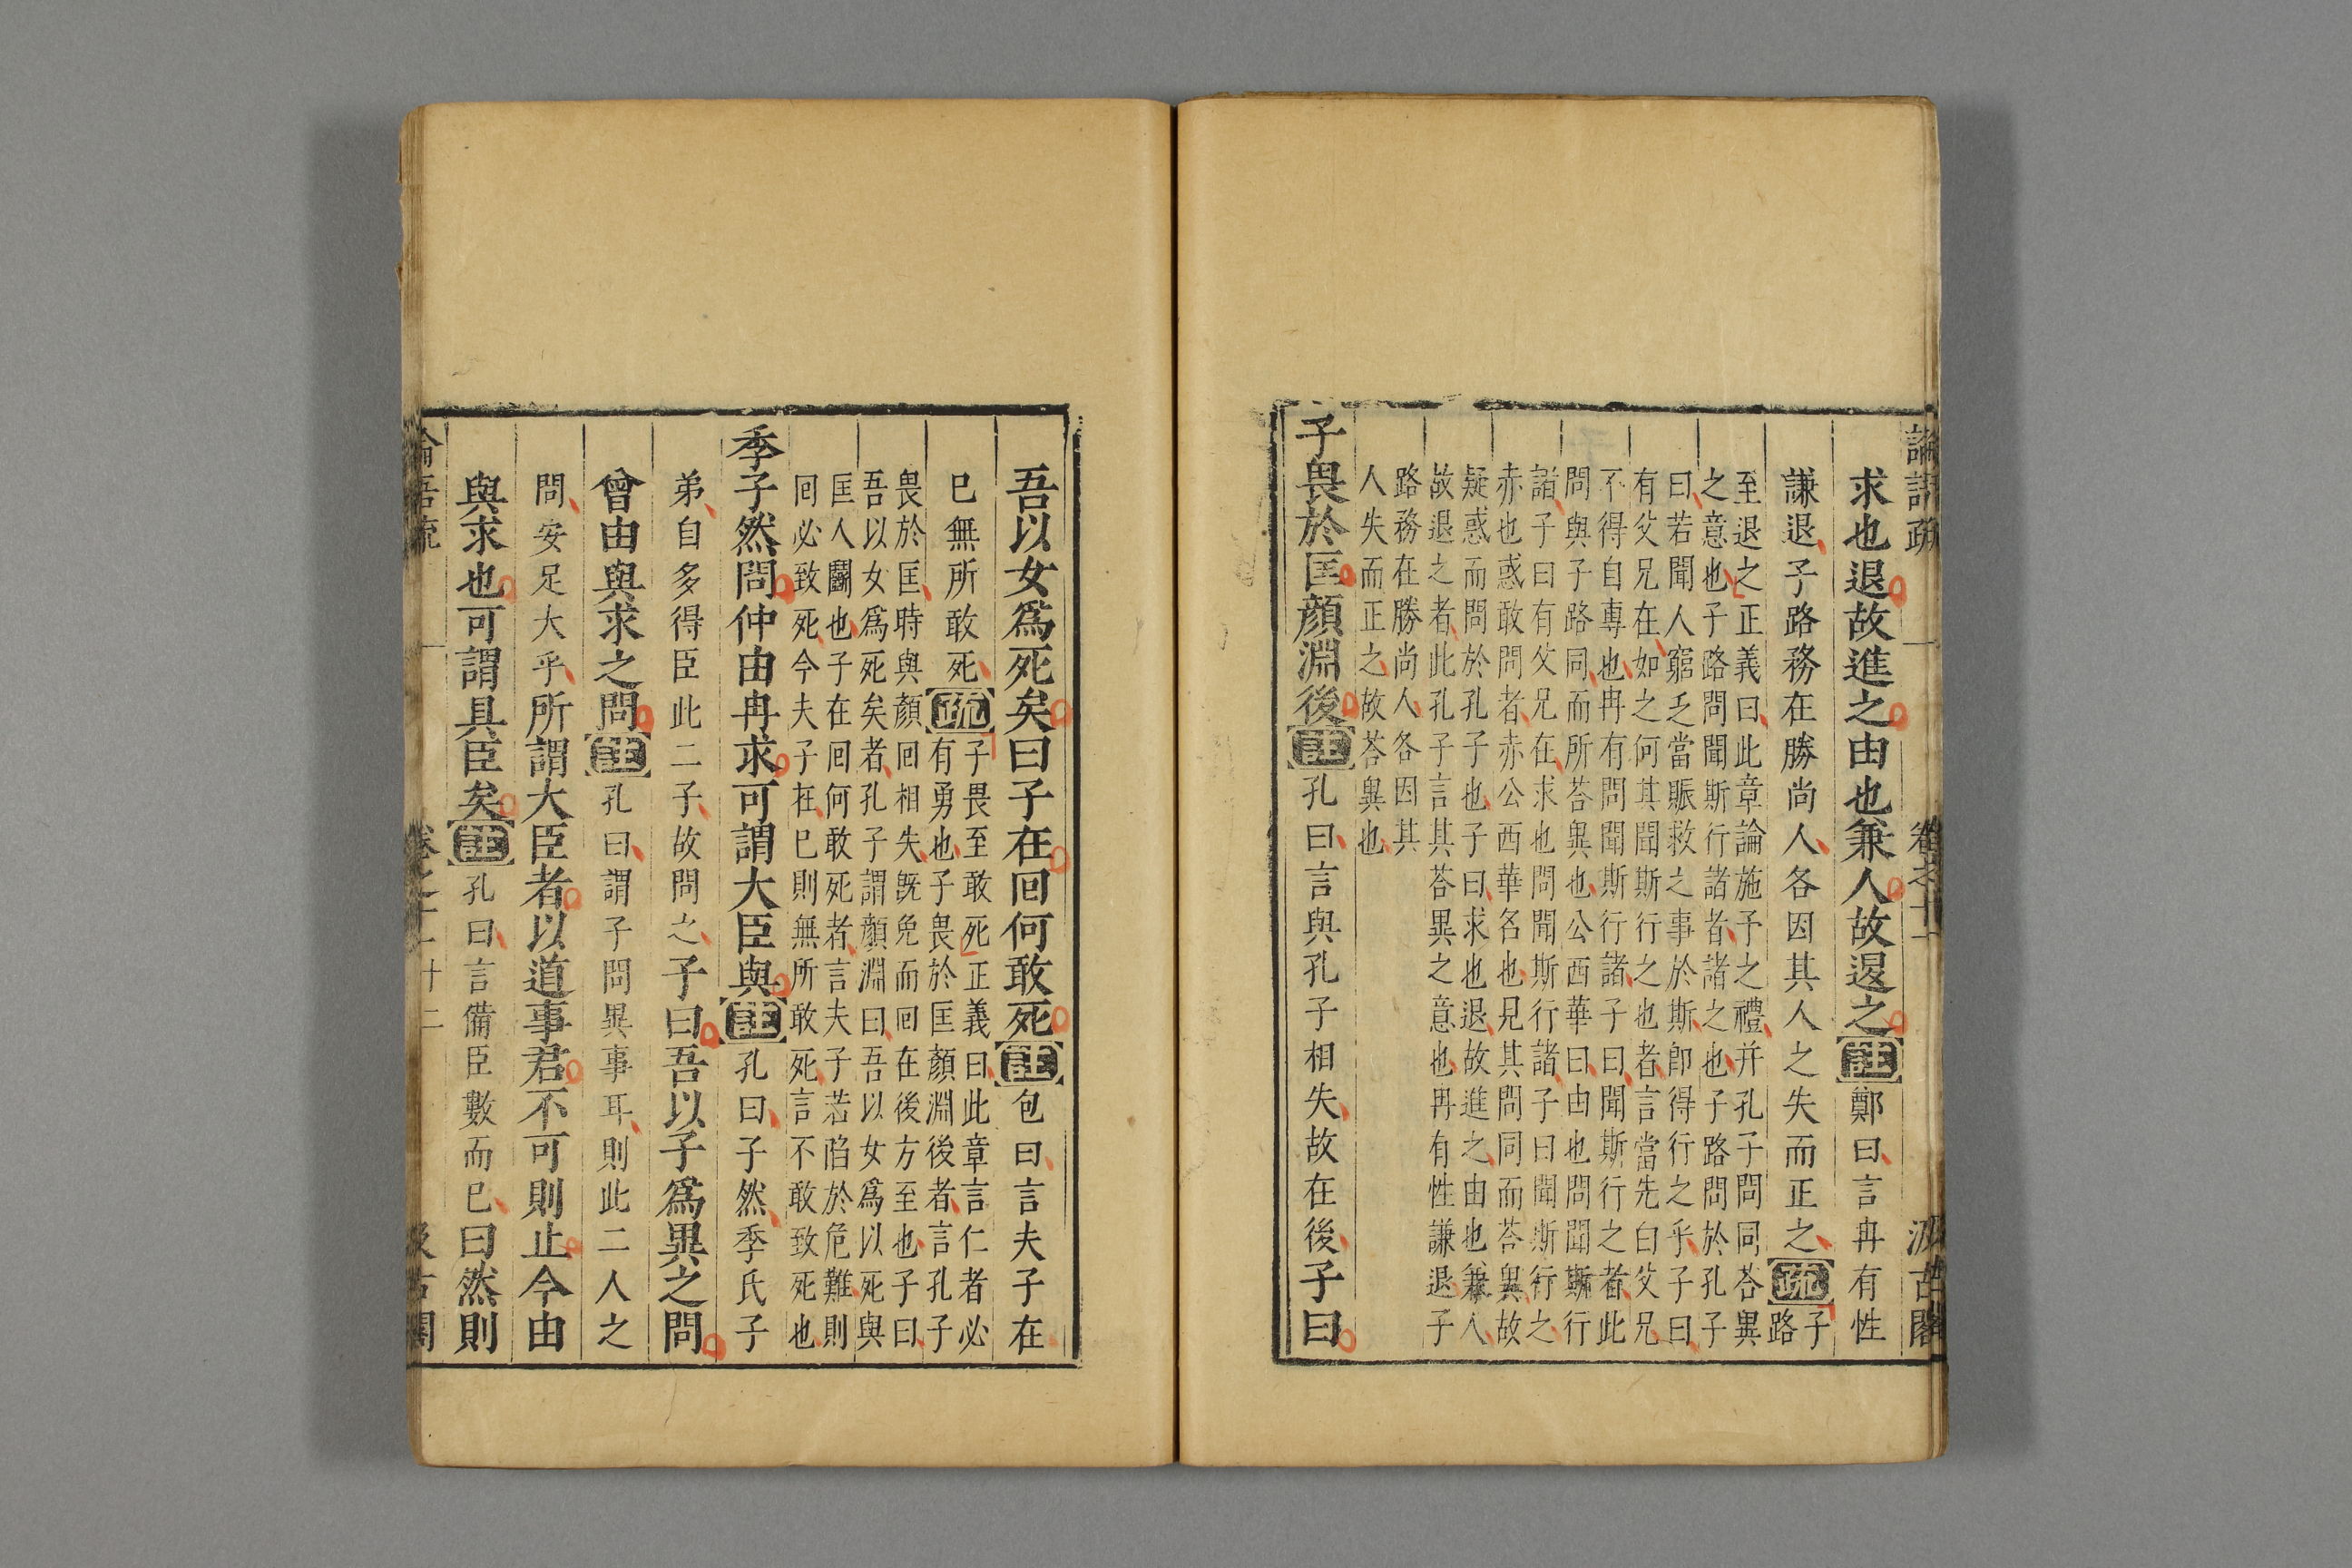 論語疏 卷之十一 汲古閣
求也退故進之由也兼人故退之註鄭曰言冉有性
謙退子路務在勝尚人各因其人之失而正之疏子
路
至退之正義曰此章論施予之禮并孔子問同荅異
之意也子路問聞斯行諸者諸之也子路問於孔子
曰若聞人窮乏當賑救之事於斯卽得行之乎子曰
有父兄在如之何其聞斯行之也者言當先白父兄
不得自專也冉有問聞斯行諸子曰聞斯行之者此
問與子路同而所荅異也公西華曰由也問聞斯行
諸子曰有父兄在求也問聞斯行諸子曰聞斯行之
赤也惑敢問者赤公西華名也見其問同而荅異故
疑惑而問於孔子也子曰求也退故進之由也兼人
故退之者此孔子言其荅異之意也冉有性謙退子
路務在勝尚人各因其
人失而正之故荅異也
子畏於匡顏淵後註孔曰言與孔子相失故在後子曰
吾以女爲死矣曰子在回何敢死註包曰言夫子在
已無所敢死疏子畏至敢死正義曰此章言仁者必
有勇也子畏於匡顏淵後者言孔子
畏於匡時與顏回相失既免而回在後方至也子曰
吾以女爲死矣者孔子謂顏淵曰吾以女爲以死與
匡人鬭也子在回何敢死者言夫子若陷於危難則
回必致死今夫子在已則無所敢死言不敢致死也
季子然問仲由冉求可謂大臣與註孔曰子然季氏子
弟自多得臣此二子故問之子曰吾以子爲異之問
曾由與求之問註孔曰謂子問異事耳則此二人之
問安足大乎所謂大臣者以道事君不可則止今由
與求也可謂具臣矣註孔曰言備臣數而已曰然則
論語疏 卷之十一 十二 汲古閣